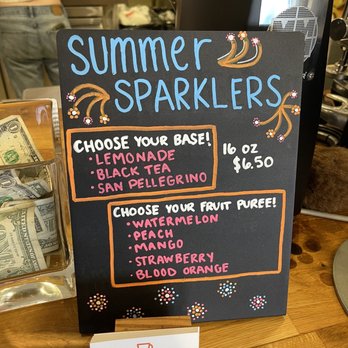 SUMMER
SPARKLERS
CHOOSE YOUR BASE!
• LEMONADE
• BLACK TEA
• SAN PELLEGRINO
16 OZ
$6.50
CHOOSE YOUR FRUIT PUREE!
• WATERMELON
• PEACH
• MANGO
• STRAWBERRY
• BLOOD ORANGE